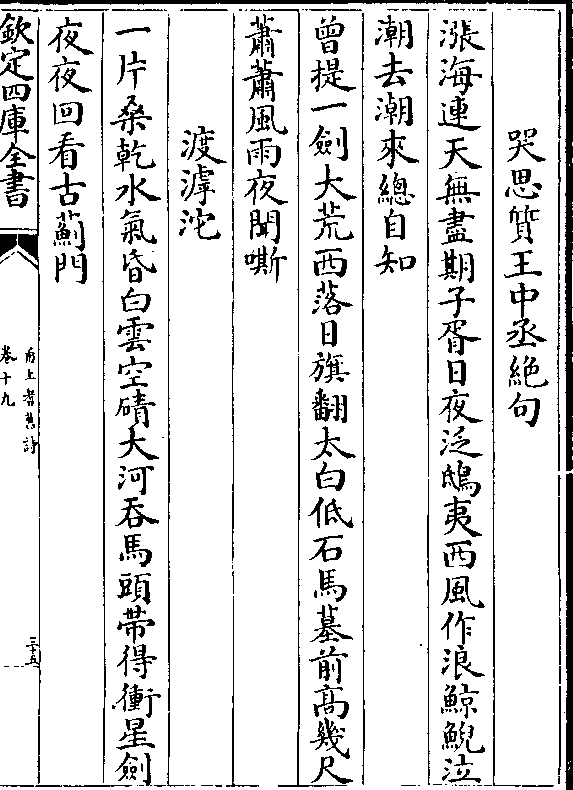 哭思質王中丞絶句
漲海連天無盡期子胥日夜泛鴟夷西風作浪鯨鯢泣
潮去潮來總自知
曾提一劍大荒西落日旗翻太白低石馬墓前高幾尺
蕭蕭風雨夜聞嘶
渡滹沱
一片桑乾水氣昏白雲空磧大河吞馬頭帶得衝星劍
夜夜回看古薊門
欽定四庫全書
卷十九
三十五